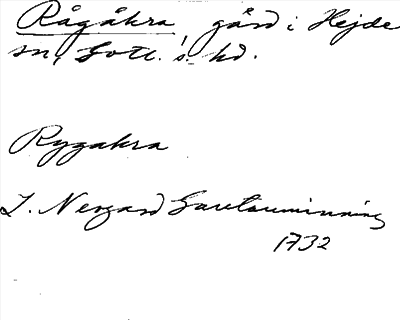 Rågåkra, gård i Hejde
sn, Gotl. s. hd.
Rygakra
L. Nergard
1732